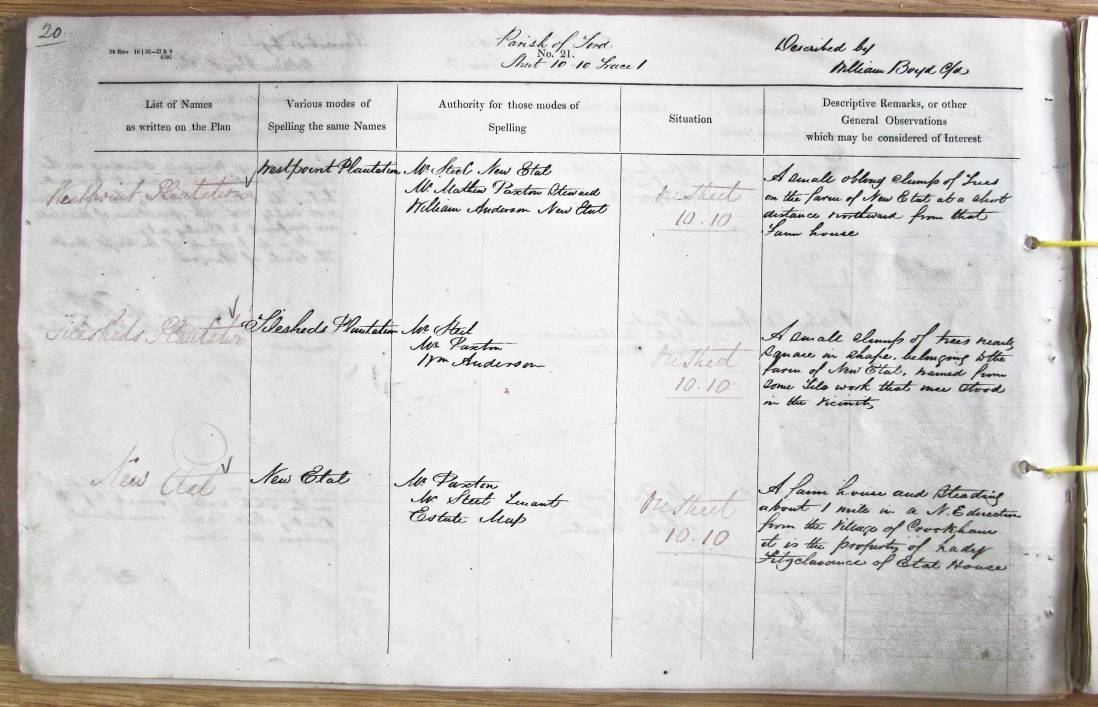 20
Parish of Ford
No. 21.
Sheet 10-10 Trace 1
Described by
William Boyd C/a
List of Names
as written on the Plan
Various modes of
Spelling the same Names
Authority for those modes of
Spelling
Situation
Descriptive Remarks, or other
General Observations
which may be considered of Interest
Westpoint Plantation
Westpoint Plantation
Mr Steel New Etal
Mr Mathew Paxton Steward
William Anderson New Etal
On Sheet
10.10
A small oblong clump of Trees
on the farm of New Etal at a short
distance northward from that
Farm house
Tilesheds Plantation
Tilesheds Plantation
Mr Steel
Mr Paxton
Wm Anderson
On Sheet
10.10
A small clump of trees nearly
Square in shape belonging to the
farm of New Etal, named from
some Tile work that once stood
in the vicinity
New Etal
New Etal
Mr Paxton
Mr Steel Tenant
Estate Map
On Sheet
10.10
A farm house and Steading
about 1 mile in a N.E direction
from the village of Crookham
it is the property of Lady
Fitzclarance of Etal House